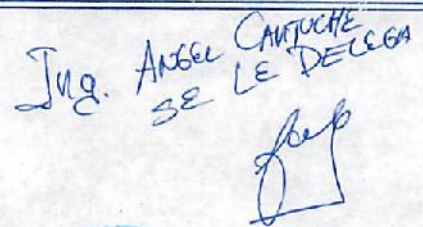 Ing. ANGEL CANTUCHE
SE LE DELEGA